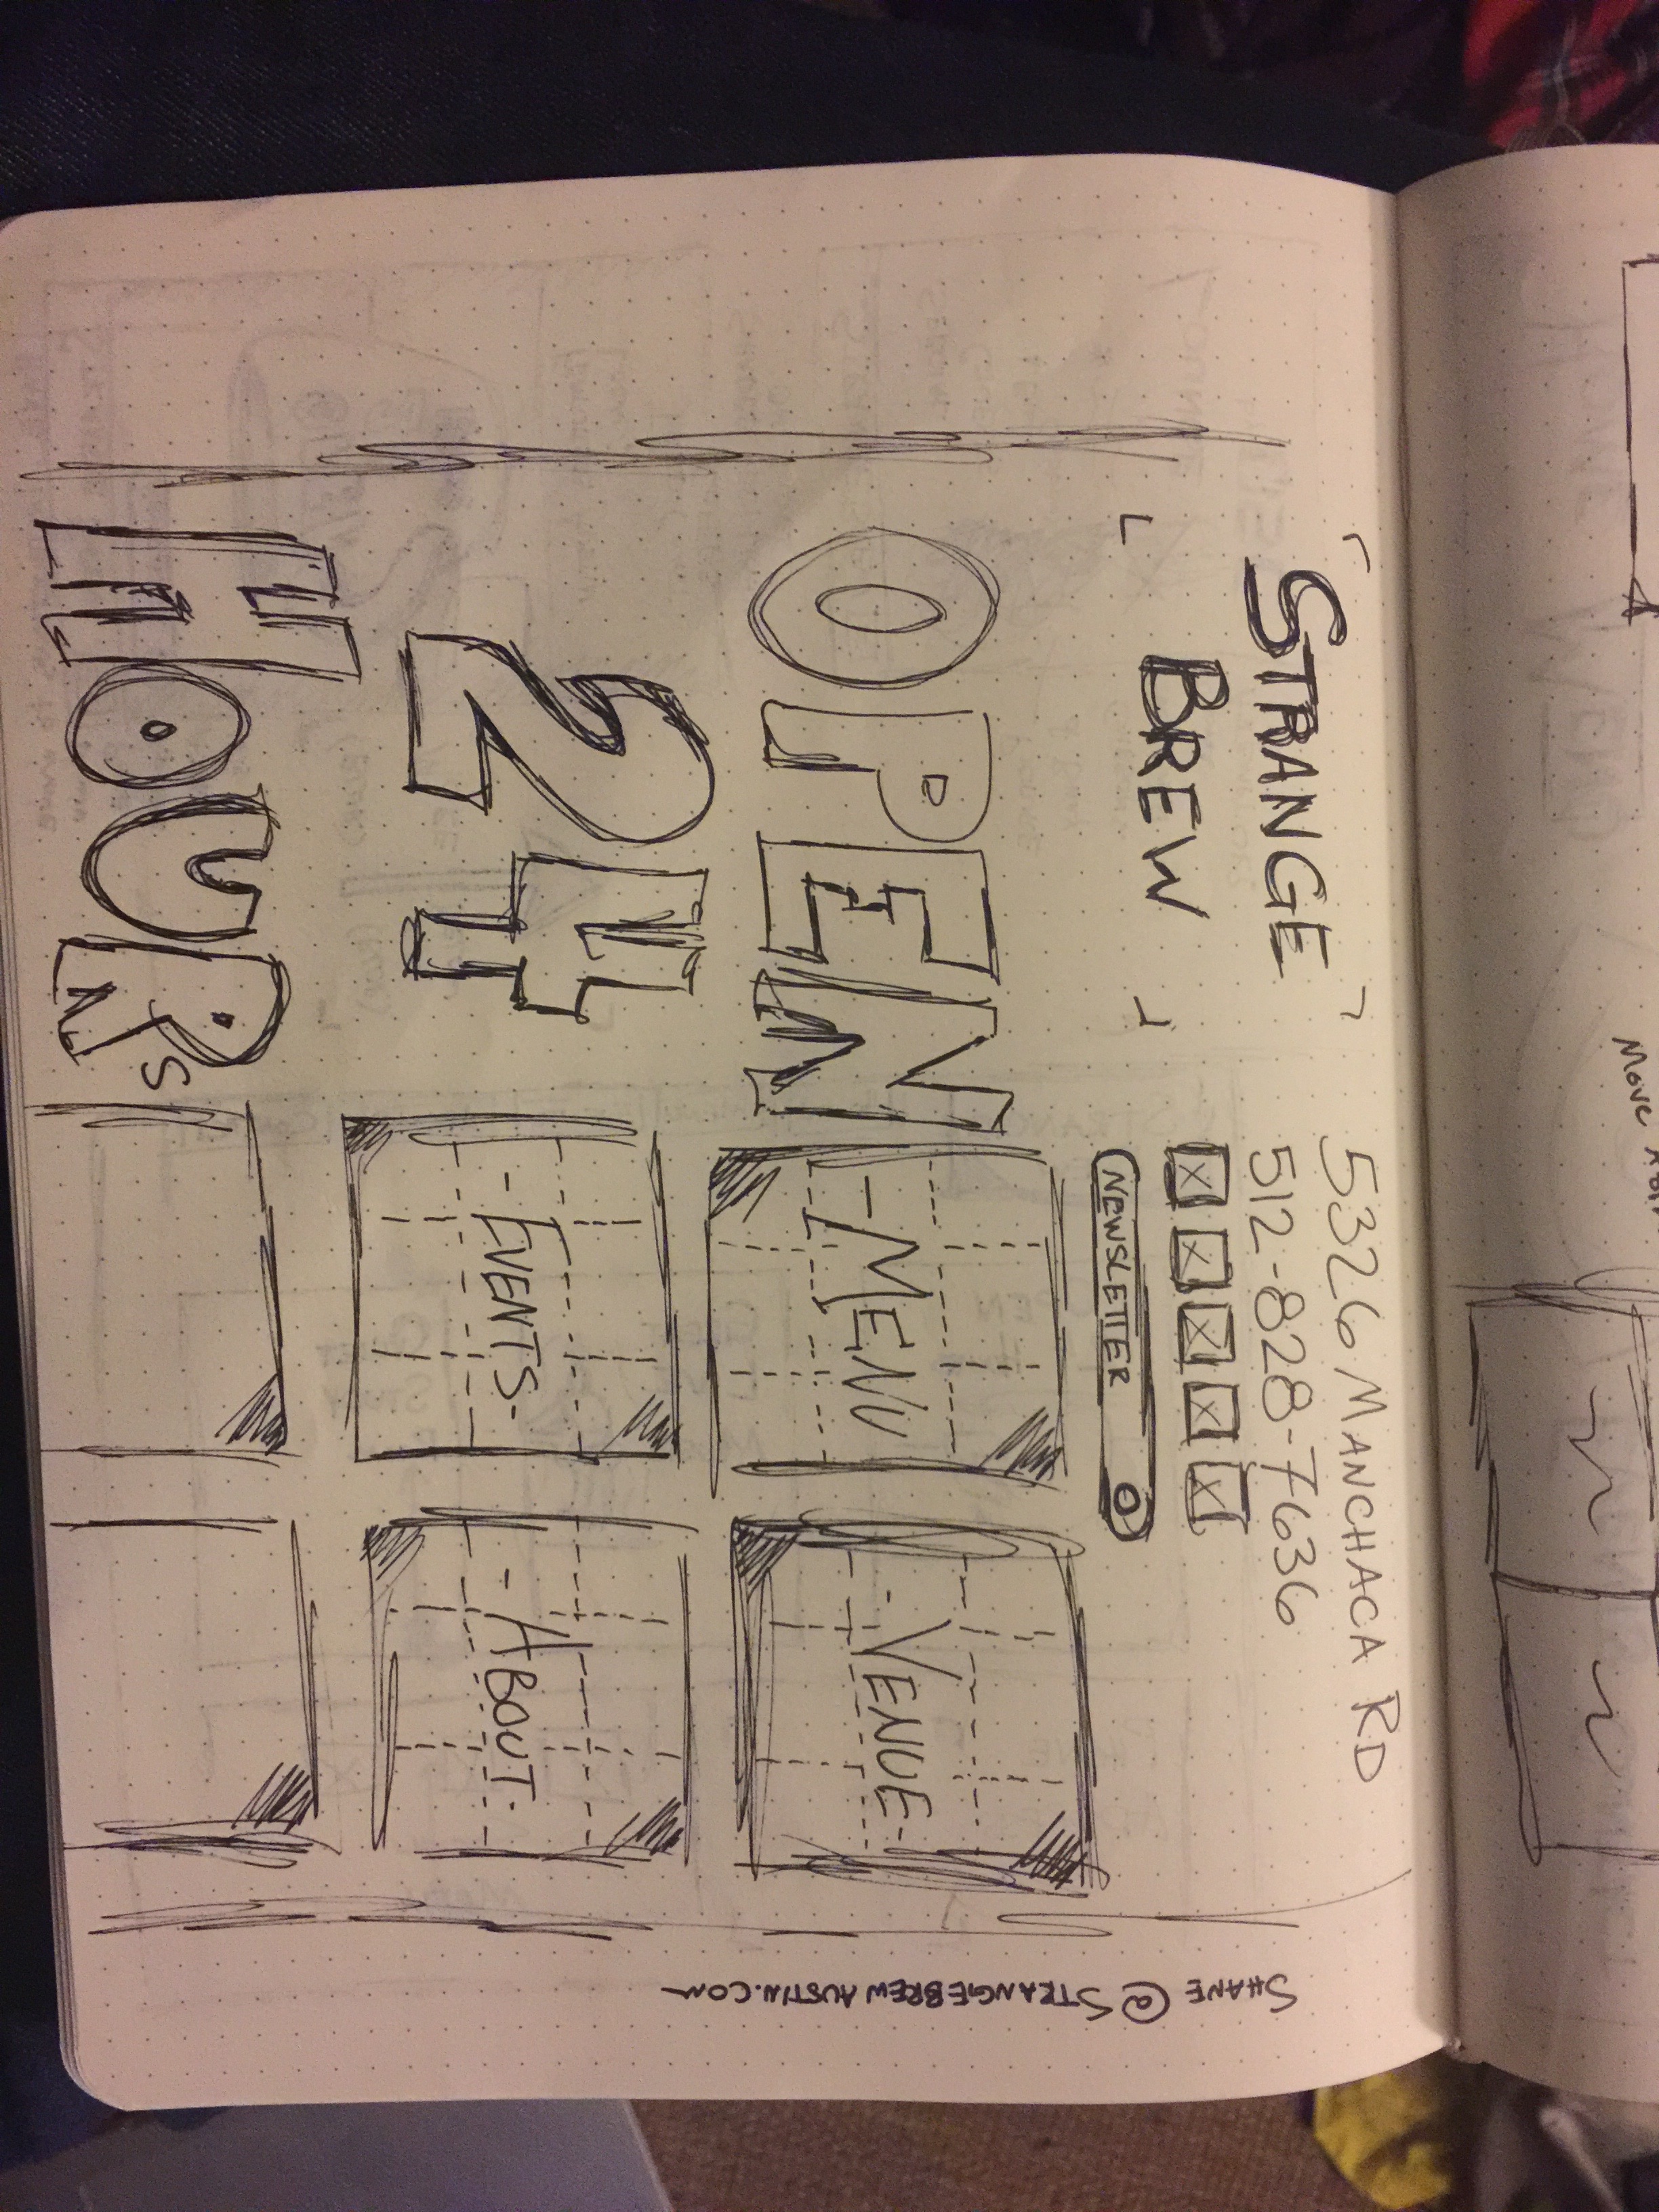 STRANGE
BREW
5326 MANCHACA RD
512-828-7636
NEWSLETTER
OPEN
24
HOURS
-MENU
-VENUE-
-EVENTS-
-ABOUT-
SHANE@STRANGEBREWAUSTIN.COM
MOVE